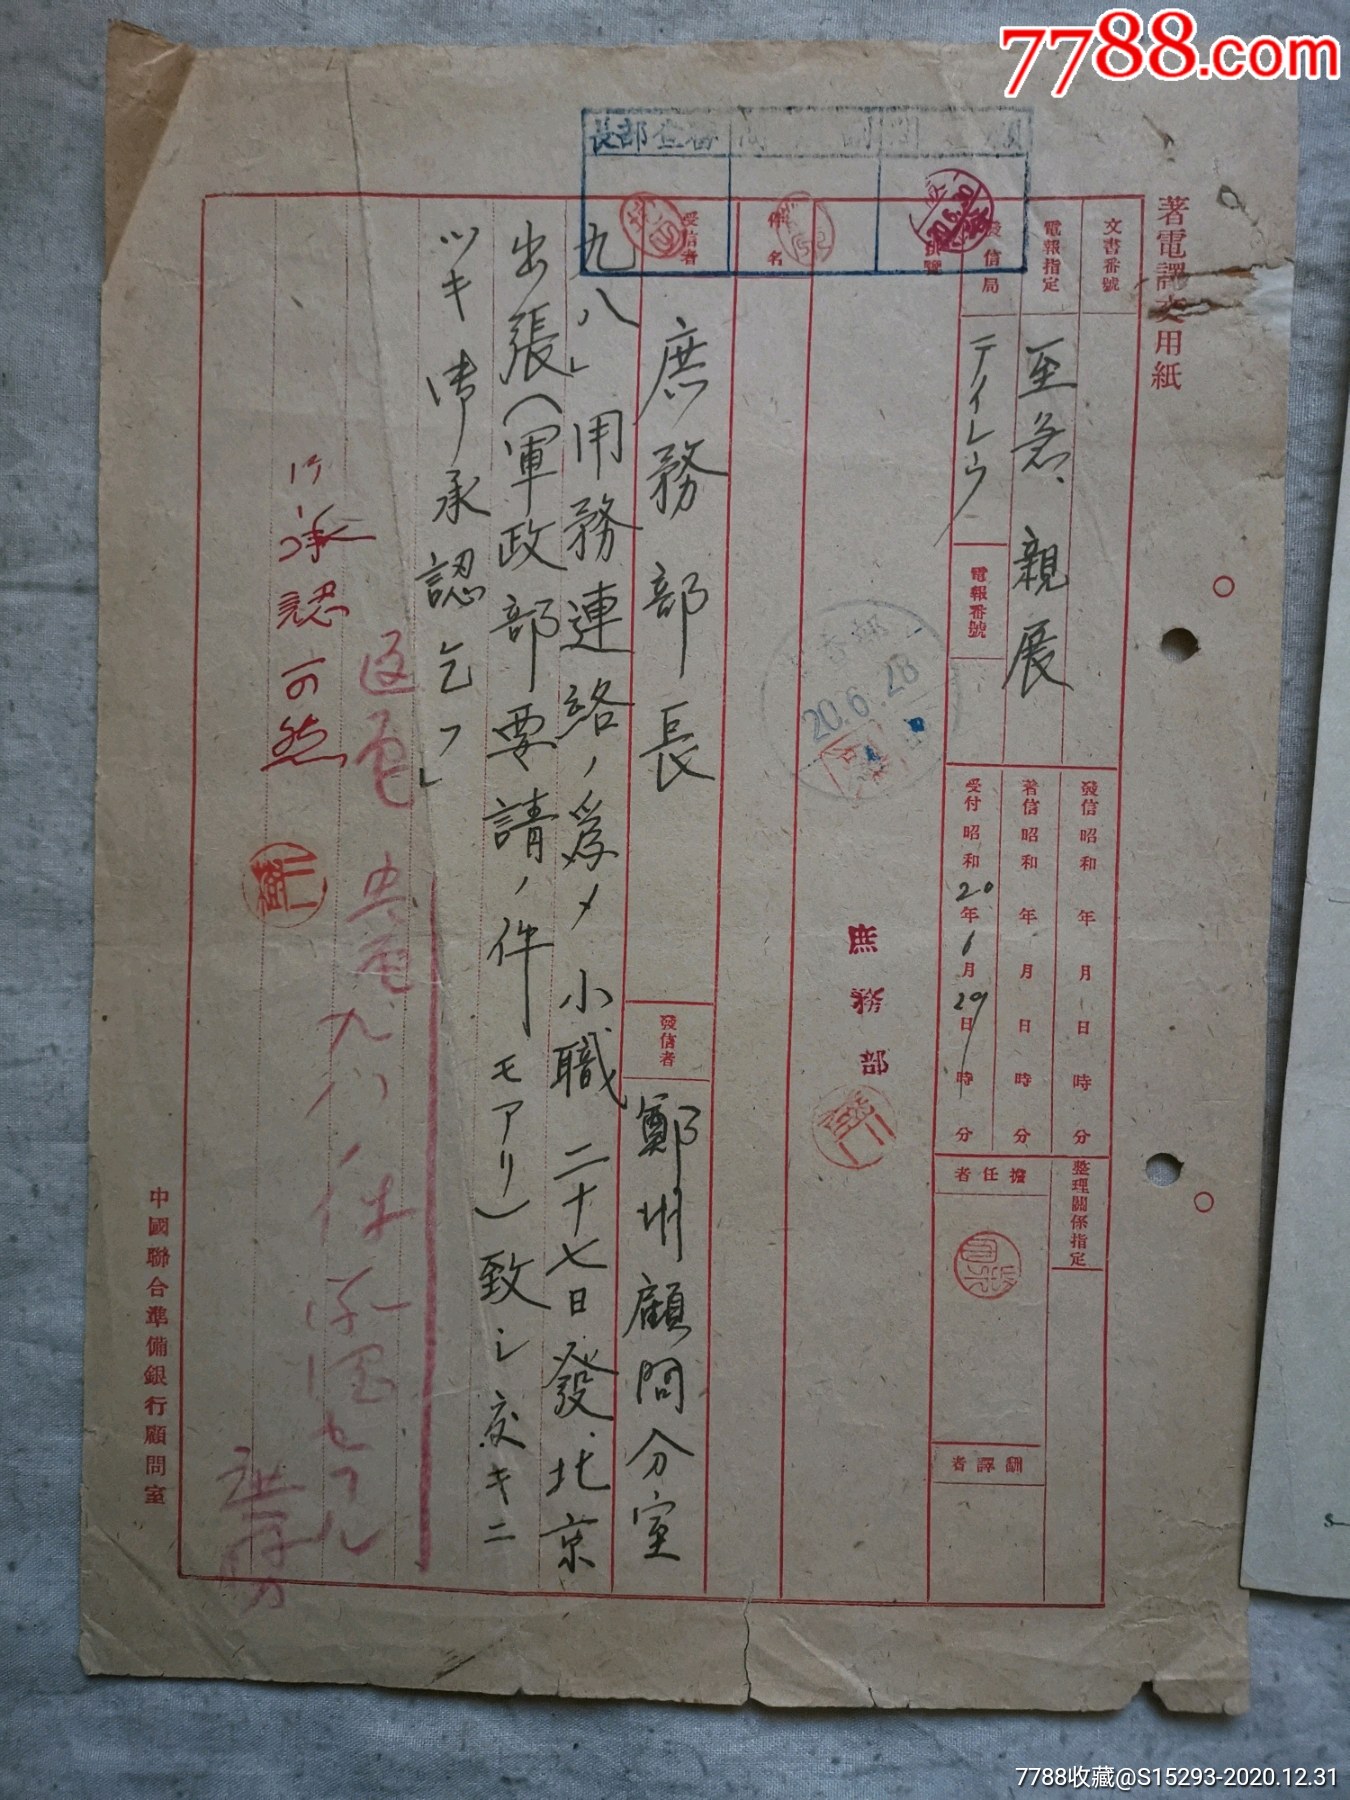 7788.com
著電譯文用紙
文書番號
電報指定 至急、親展
發信局 テイレウ
電報番號
發信昭和 年 月 日 時 分
著信昭和 年 月 日 時 分
受付昭和20年6月29日 時 分
整理關係指定
擔任者
飜譯者
審查部長
20.6.28
庶務部
件名
受信者 庶務部長
發信者 鄭州顧問分室
九八、用務連絡ノ為メ小職二十七日發北京
出張(軍政部要請ノ件モアリ)致シ度キニ
ツキ御承認乞フ」
承認可然
返電 九八ノ件承認セラル
中國聯合準備銀行顧問室
7788收藏@S15293-2020.12.31